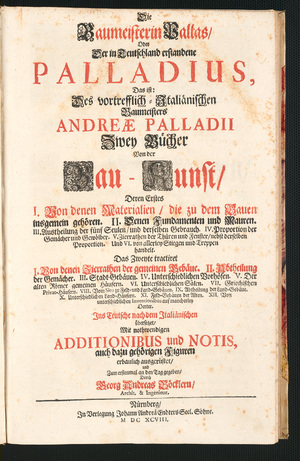 Die
Baumeisterin Pallas/
Oder
Der in Teutschland erstandene
PALLADIUS,
Das ist:
Des vortrefflich-Italiänischen
Baumeisters
ANDREÆ PALLADII
Zwey Bücher
Von der
Bau-Kunst/
Deren Erstes
I. Von denen Materialien/ die zu dem Bauen
insgemein gehören. II. Denen Fundamenten und Mauren.
III. Austheilung der fünf Seulen/ und derselben Gebrauch. IV. Proportion der
Gemächer und Gewölber. V. Zierrathen der Thüren und Fenster/ nebst derselben
Proportion. Und VI. von allerley Stiegen und Treppen
handelt.
Das Zweyte tractiret
I. Von denen Zierrathen der gemeinen Gebäue. II. Abtheilung
der Gemächer. III. Stadt-Gebäuen. IV. Unterschiedlichen Vorhöfen. V. Der
alten Römer gemeinen Häusern. VI. Unterschiedlichen Sälen. VII. Griechischen
Privat-Häusern. VIII. Vom Situ zu Feld- und Land-Gebäuen. IX. Abtheilung der Land-Gebäue.
X. Unterschiedlichen Land-Häusern. XI. Feld-Gebäuen der Alten. XII. Von
unterschiedlichen
Ins Teutsche nach dem Italiänischen
übersetzet/
Mit nothwendigen
ADDITIONIBUS und NOTIS,
auch dazu gehörigen Figuren
erbaulich ausgerüstet/
und
Zum erstenmal an den Tag gegeben/
Durch
Georg Andreas Böcklern/
Archit. & Ingenieur.
Nürnberg/
In Verlegung Johann Andreä Endters Seel. Söhne.
M DC XCVIII.